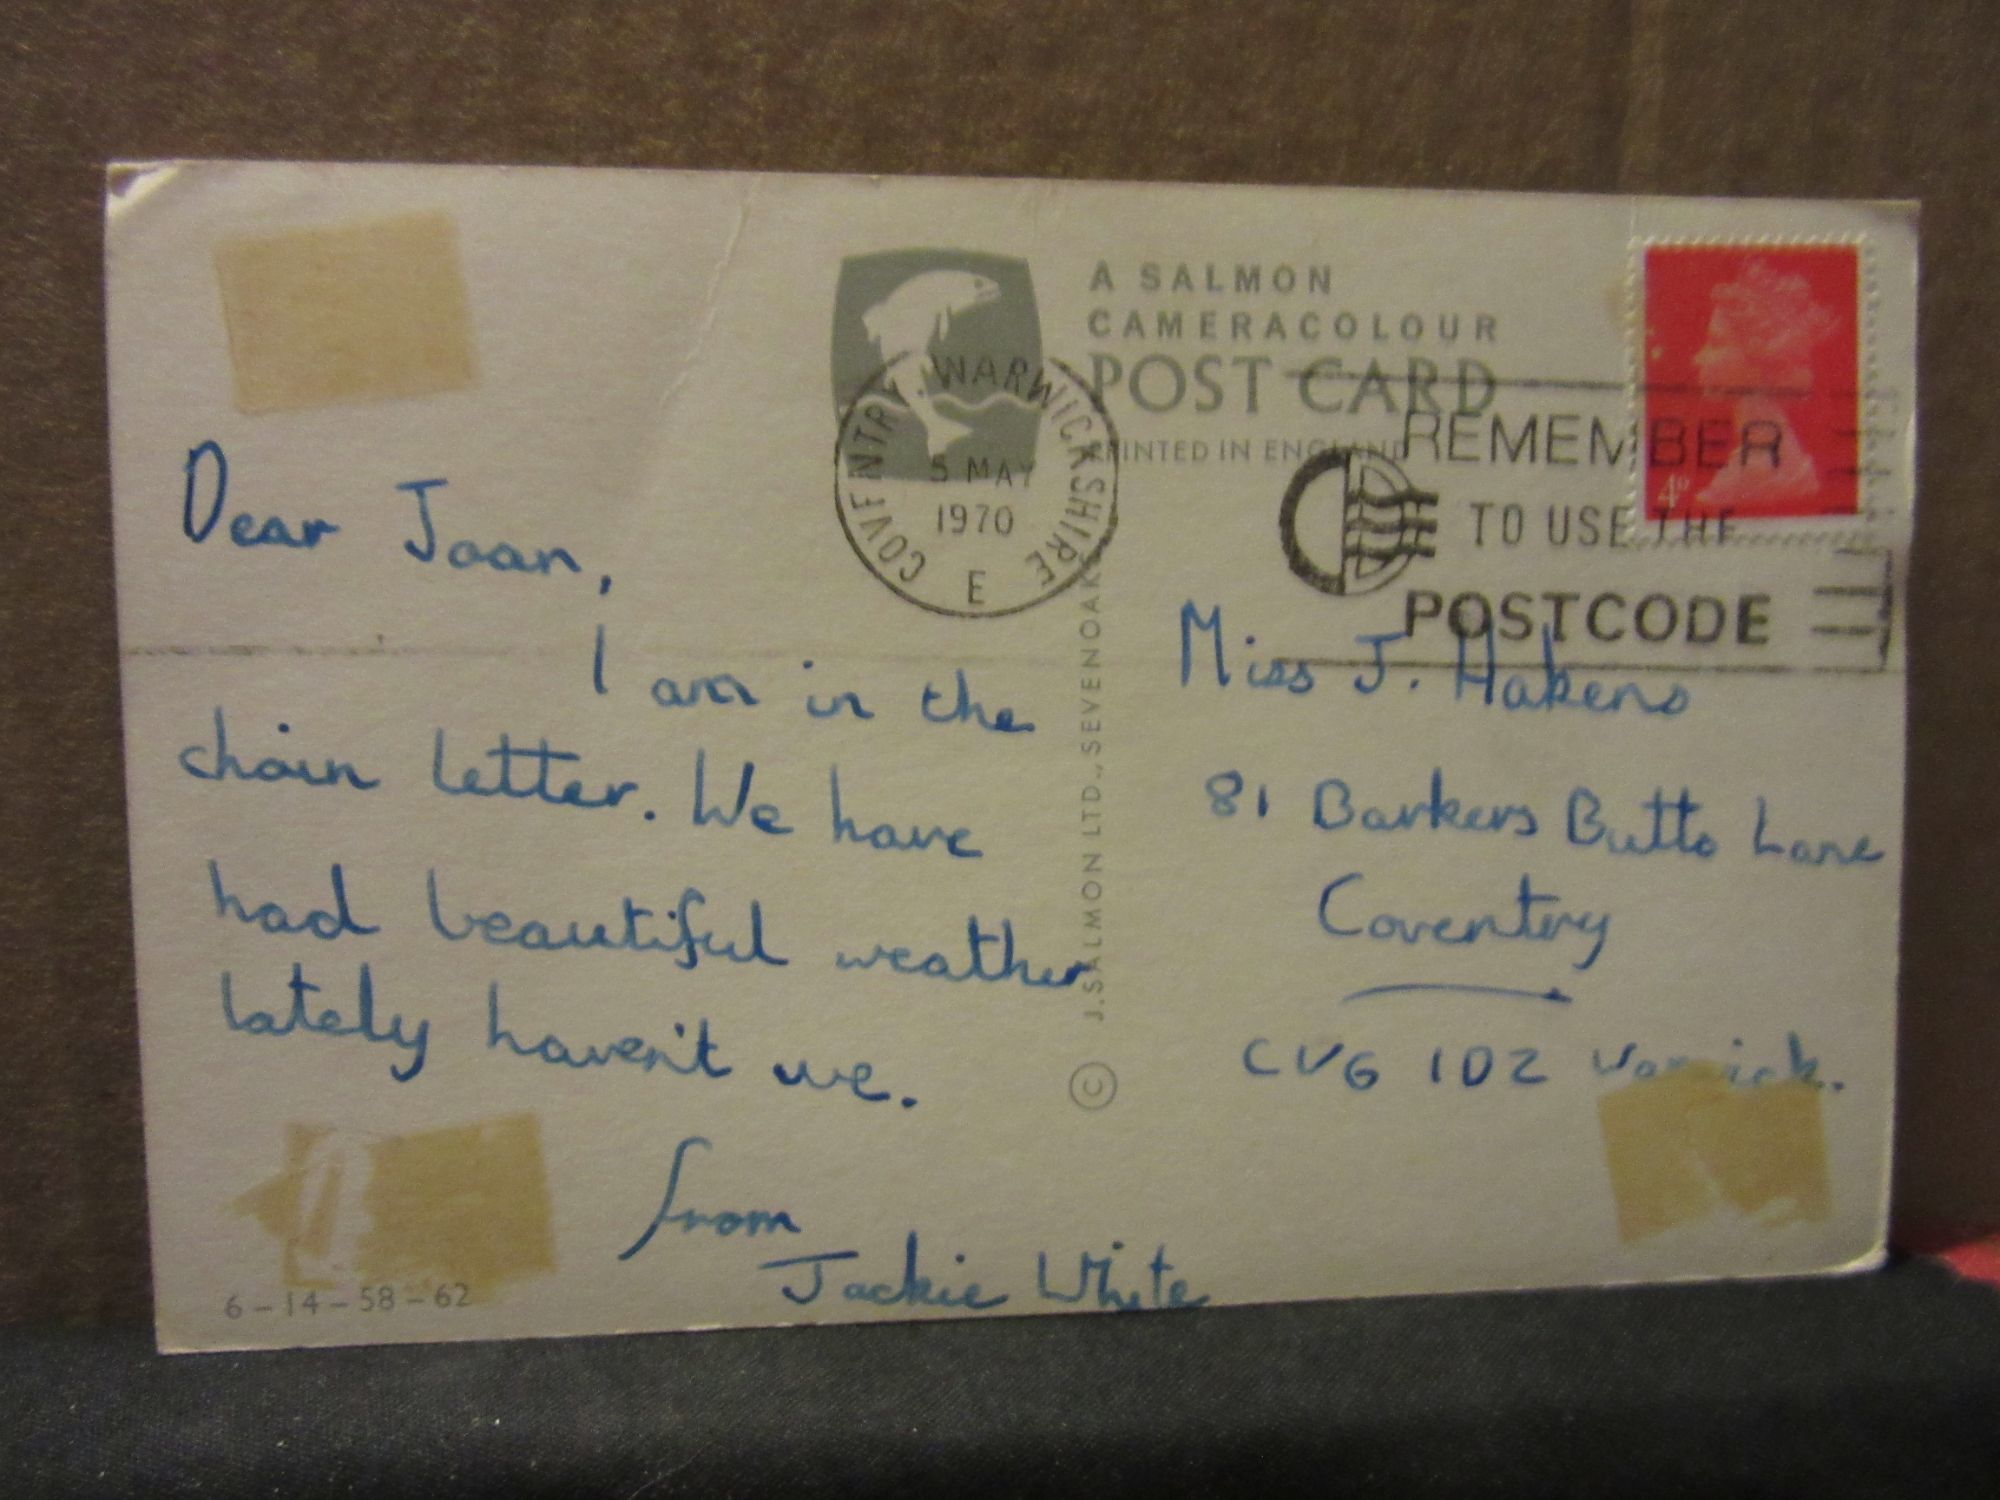 A SALMON
CAMERACOLOUR
POST CARD
PRINTED IN ENGLAND
COVENTRY WARWICKSHIRE
5 MAY
1970
E
REMEMBER
TO USE THE
POSTCODE
4D
Dear Joan,
I am in the
chain letter. We have
had beautiful weather
lately haven't we.
from
Jackie White
6-14-58-62
© J. SALMON LTD., SEVENOAKS
Miss J. Hakens
81 Barkers Butts Lane
Coventry
CV6 1DZ Warwick.